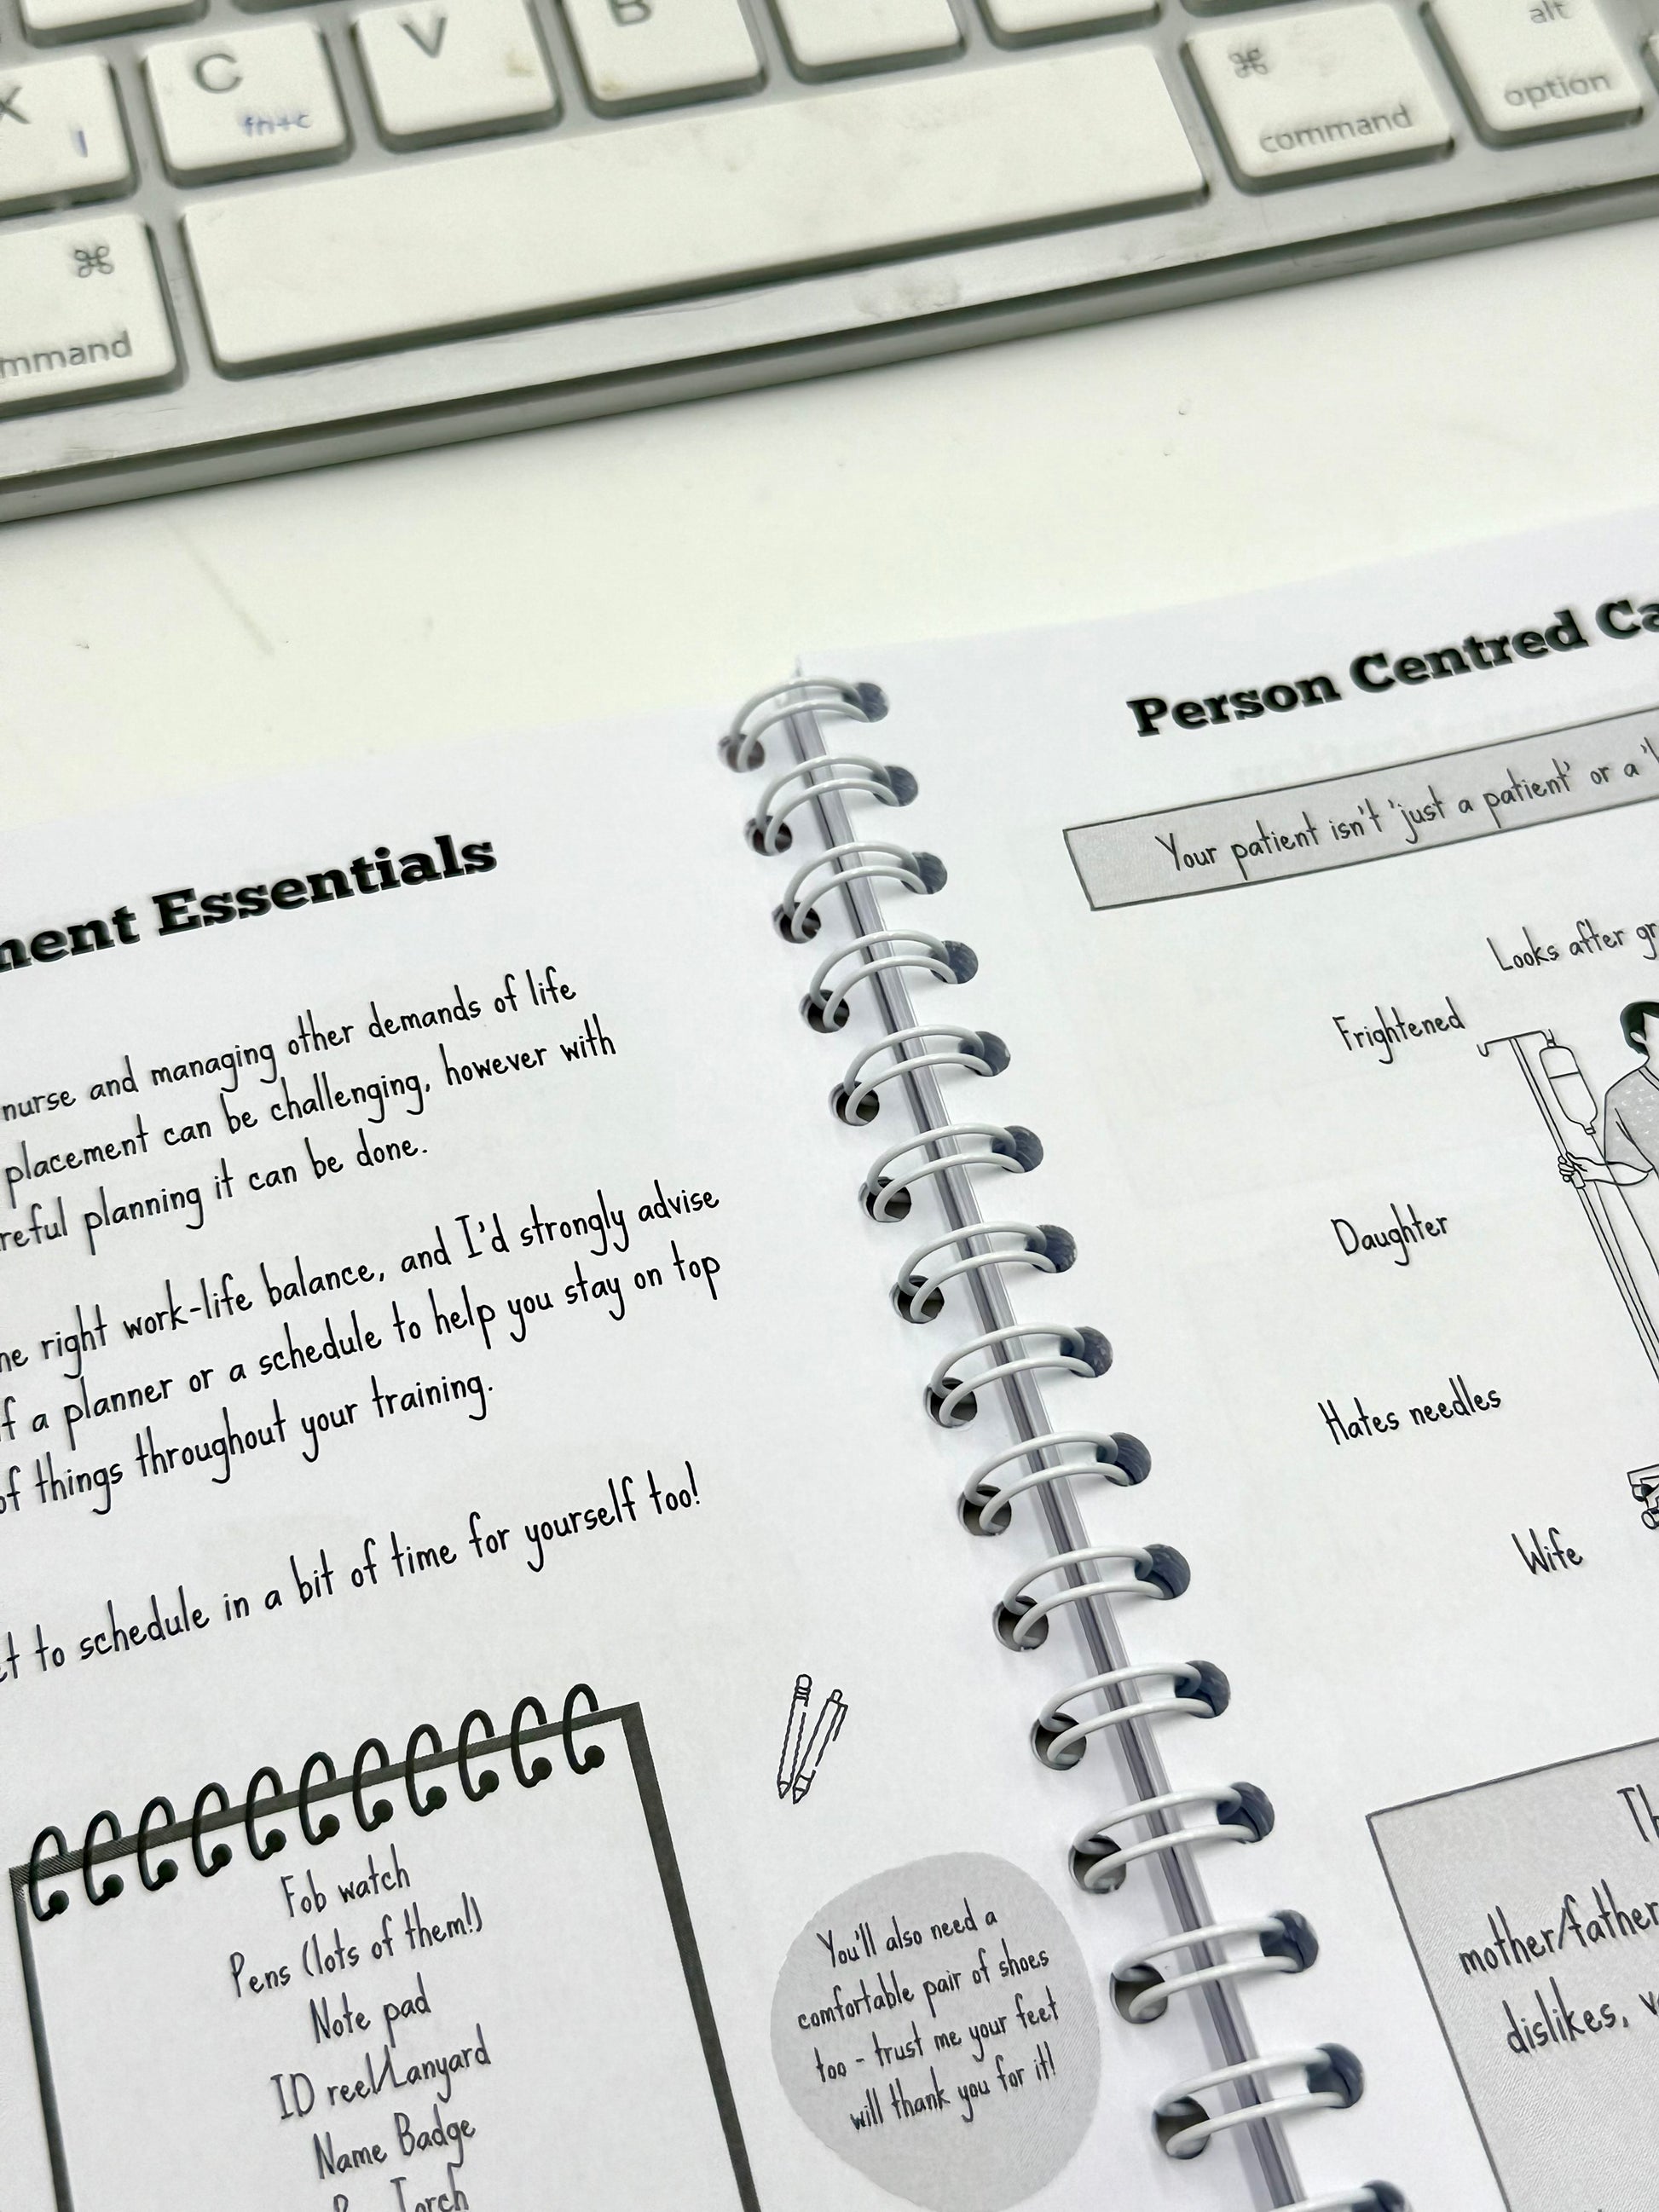 X
C
fn+c
V
B
⌘
command
alt
option
⌘
mmand
ment Essentials
nurse and managing other demands of life
placement can be challenging, however with
reful planning it can be done.
he right work-life balance, and I'd strongly advise
f a planner or a schedule to help you stay on top
of things throughout your training.
et to schedule in a bit of time for yourself too!
Fob watch
Pens (lots of them!)
Note pad
ID reel/Lanyard
Name Badge
Torch
You'll also need a
comfortable pair of shoes
too - trust me your feet
will thank you for it!
Person Centred Ca
Your patient isn't 'just a patient' or a
Looks after gr
Frightened
Daughter
Hates needles
Wife
Th
mother/father
dislikes, v